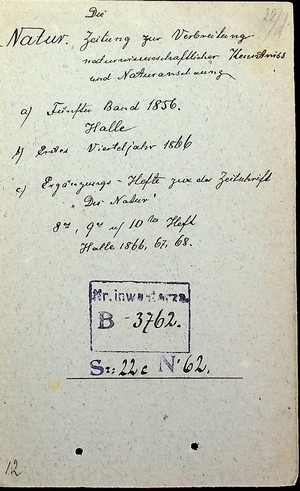 Die
22/1
Natur. Zeitung zur Verbreitung
naturwissenschaftlicher Kenntniss
und Naturanschauung
a) Fünfter Band 1856.
Halle
b) Erstes Vierteljahr 1866
c) Ergänzungs-Hefte zur der Zeitschrift
"Die Natur"
8es, 9es u/ 10tes Heft
Halle 1866, 67, 68.
Nr. inwentarza
B - 3762.
Sz: 22c No 62.
12